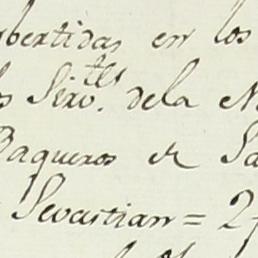 bertidas en los
s Sirv.tes dela N
Baqueros et Sa
Sevastian = 2